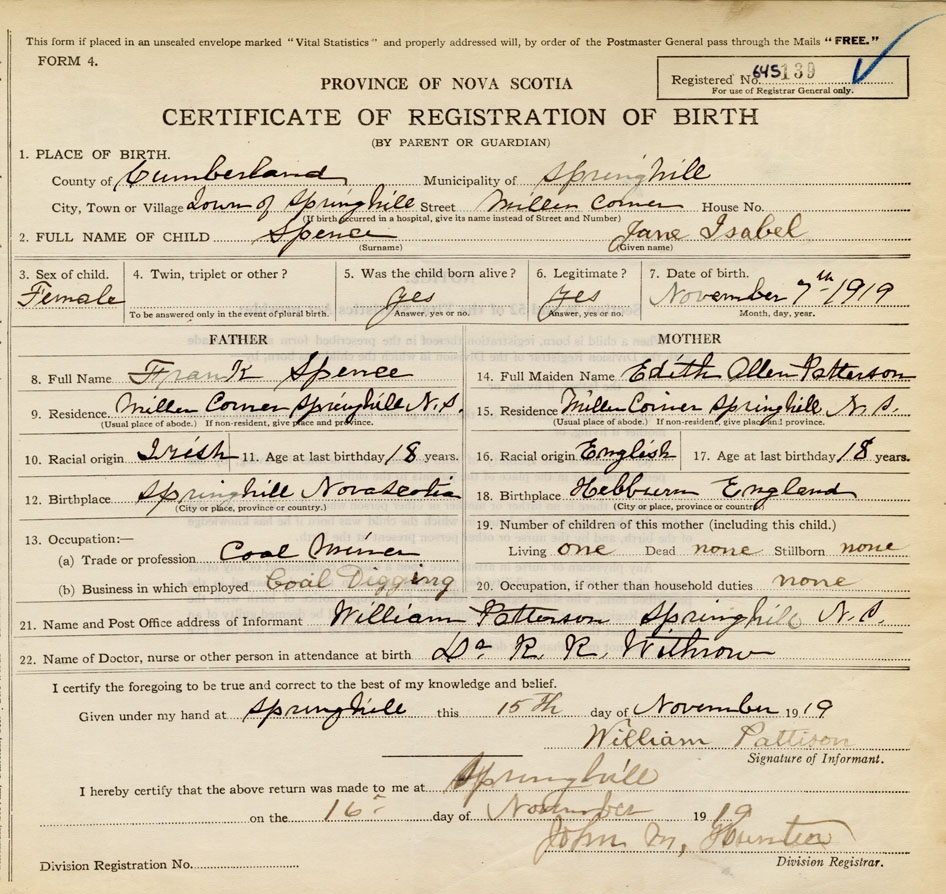 This form if placed in an unsealed envelope marked "Vital Statistics" and properly addressed will, by order of the Postmaster General pass through the Mails "FREE."
FORM 4.
Registered No. 645139
For use of Registrar General only.
PROVINCE OF NOVA SCOTIA
CERTIFICATE OF REGISTRATION OF BIRTH
(BY PARENT OR GUARDIAN)
1. PLACE OF BIRTH.
County of Cumberland Municipality of Springhill
City, Town or Village Town of Springhill Street Miller Corner House No.
(If birth occurred in a hospital, give its name instead of Street and Number)
2. FULL NAME OF CHILD Spence Jane Isabel
(Surname) (Given name)
3. Sex of child. 4. Twin, triplet or other? 5. Was the child born alive? 6. Legitimate? 7. Date of birth.
Female yes yes November 7th 1919
To be answered only in the event of plural birth. Answer, yes or no. Answer, yes or no. Month, day, year.
FATHER MOTHER
8. Full Name Frank Spence 14. Full Maiden Name Edith Allen Patterson
9. Residence. Miller Corner Springhill N.S. 15. Residence Miller Corner Springhill N.S.
(Usual place of abode.) If non-resident, give place and province. (Usual place of abode.) If non-resident, give place and province.
10. Racial origin Irish 11. Age at last birthday 18 years. 16. Racial origin English 17. Age at last birthday 18 years.
12. Birthplace Springhill Nova Scotia 18. Birthplace Hebburn England
(City or place, province or country.) (City or place, province or country)
13. Occupation:— 19. Number of children of this mother (including this child.)
(a) Trade or profession Coal Miner Living one Dead none Stillborn none
(b) Business in which employed Coal Digging 20. Occupation, if other than household duties none
21. Name and Post Office address of Informant William Patterson Springhill N.S.
22. Name of Doctor, nurse or other person in attendance at birth Dr R. R. Withrow
I certify the foregoing to be true and correct to the best of my knowledge and belief.
Given under my hand at Springhill this 15th day of November 1919
William Pattison
Signature of Informant.
I hereby certify that the above return was made to me at Springhill
on the 16th day of November 1919
John M. Hunter
Division Registration No. Division Registrar.